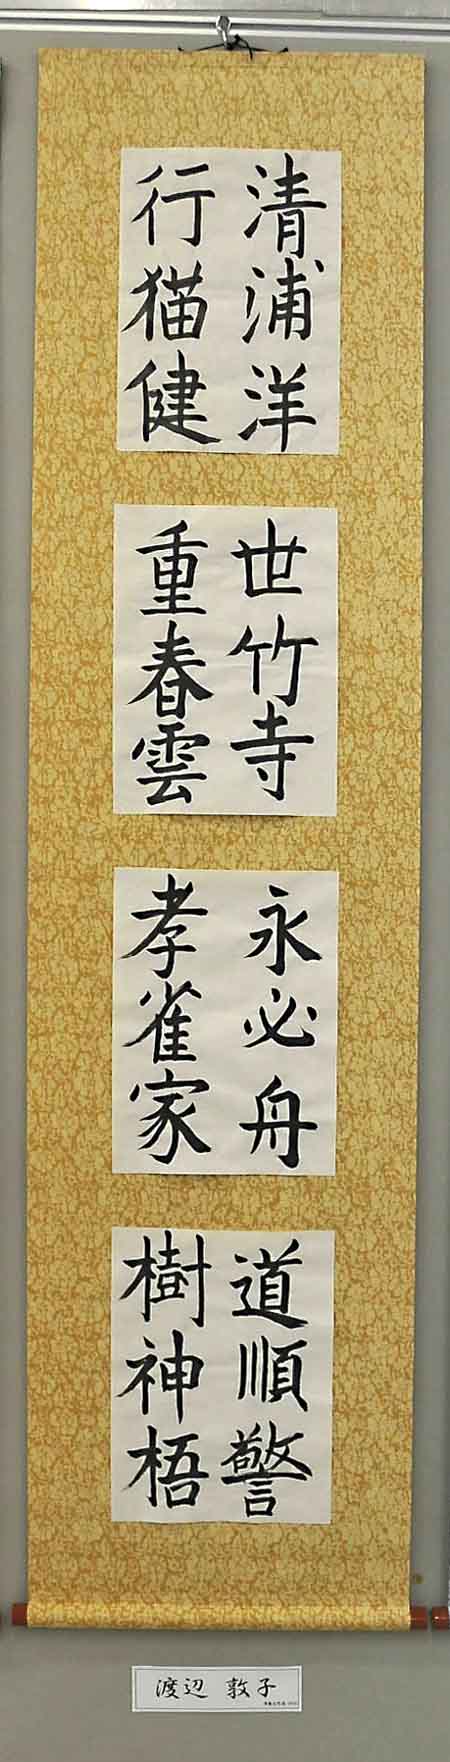 清浦洋
行猫健
世竹寺
重春雲
永必舟
孝雀家
道順警
樹神梧
渡辺 敦子